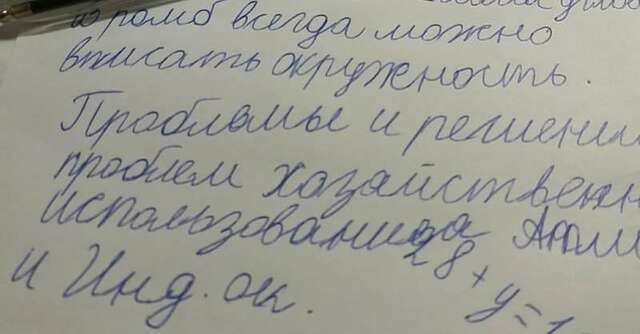 в ромб всегда можно
вписать окружность.
Проблемы и решени
проблем хозайственн
использования
и Инд. ок.
28 + y = 1